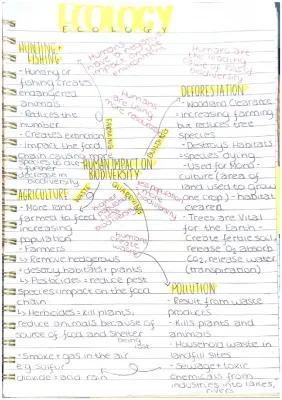 ECOLOGY
ECOLOGY
HUNTING +
FISHING
- Hunting or
fishing creates
endangered
animals
- Reduces the
number
- Creates extinction
- Impact the food
chain causing more
species to die
further
decrease in
biodiversity
Humans
impact the
Humans are
the leading
cause of
biodiversity
Humans
are using
more resources
DEFORESTATION
- Woodland Clearance
= increasing farming
but reduces tree
species
- Destroys Habitats
= species dying
- Used for Mono-
culture (area of
land used to grow
one crop) - habitat
cleared
- Trees are Vital
for the Earth -
Create fertile soil,
release O2 absorb
CO2, release water
(transpiration)
FARMING
BUILDING
HUMAN IMPACT ON
BIODIVERSITY
WASTE
QUARRYING
Humans
waste
AGRICULTURE
- More land
farmed to feed
increasing
population
- Farmers
↳ Remove hedgerows
+ destroy habitats + plants
↳ Pesticides = reduce pest
species = impact on the food
chain
↳ Herbicides = kill plants,
reduce animals because of
source of food and shelter
being lost
- Smoke + gas in the air
e.g sulfur
dioxide = acid rain
POLLUTION
- Result from waste
products
- Kills plants and
animals
- Household waste in
landfill sites
- Sewage + toxic
chemicals from
industries into lakes,
rivers